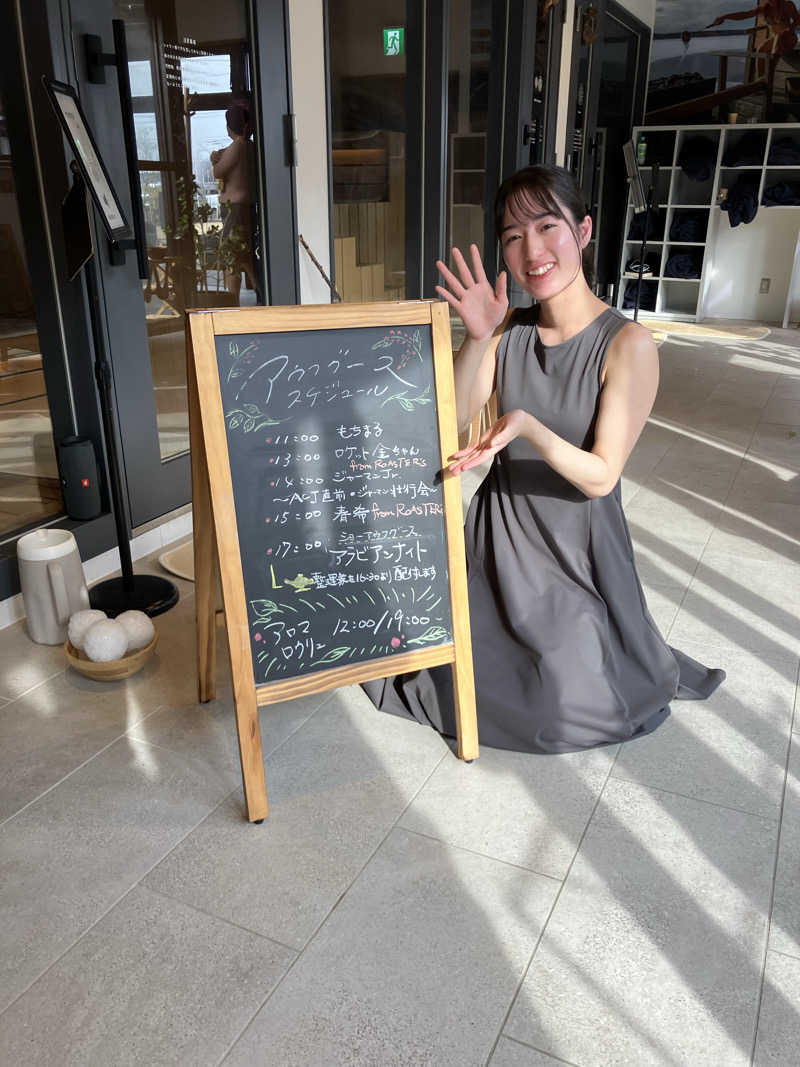 アウフグース
スケジュール
11:00 もちまる
13:00 ロケット金ちゃん
from ROASTER's
14:00 ジャーマンJr.
〜ACJ直前・ジャーマン壮行会〜
15:00 春希 from ROASTER's
ショーアウフグース
17:00 アラビアンナイト
整理券を16:30より配付します
アロマ
ロウリュ
12:00/19:00〜